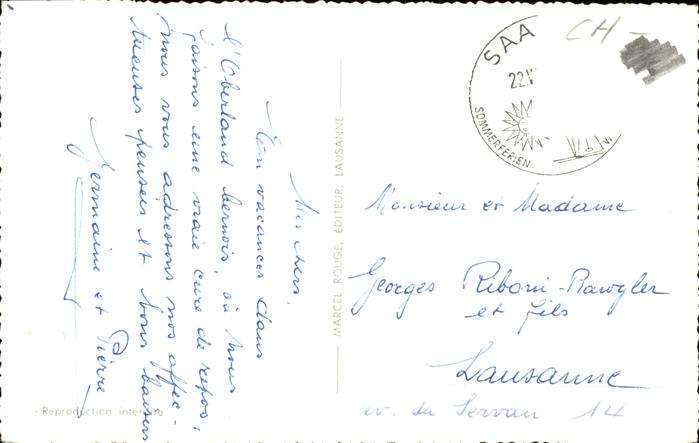 Mes chers,
En vacances dans
l'Oberland bernois, où nous
faisons une vraie cure de repos,
nous vous adressons nos affec-
tueuses pensées et bons baisers
Germaine et Pierre
MARCEL ROUGE, ÉDITEUR, LAUSANNE
- Reproduction interdite
CH -
SAA
22.V
SOMMERFERIEN
Monsieur et Madame
Georges Riboni-Rawyler
et fils
Lausanne
av. du Servan 14